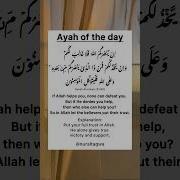 Ayah of the day
إِن يَنصُرْكُمُ اللَّهُ فَلَا غَالِبَ لَكُمْ
وَإِن يَخْذُلْكُمْ فَمَن ذَا الَّذِي يَنصُرُكُم مِّن بَعْدِهِ
وَعَلَى اللَّهِ فَلْيَتَوَكَّلِ الْمُؤْمِنُونَ
If Allah helps you, none can defeat you.
But if he denies you help,
then who else can help you?
So in Allah let the believers put their trust.
Explanation:
Put your full trust in Allah.
He alone gives true
victory and support.
@nuraltaqwa